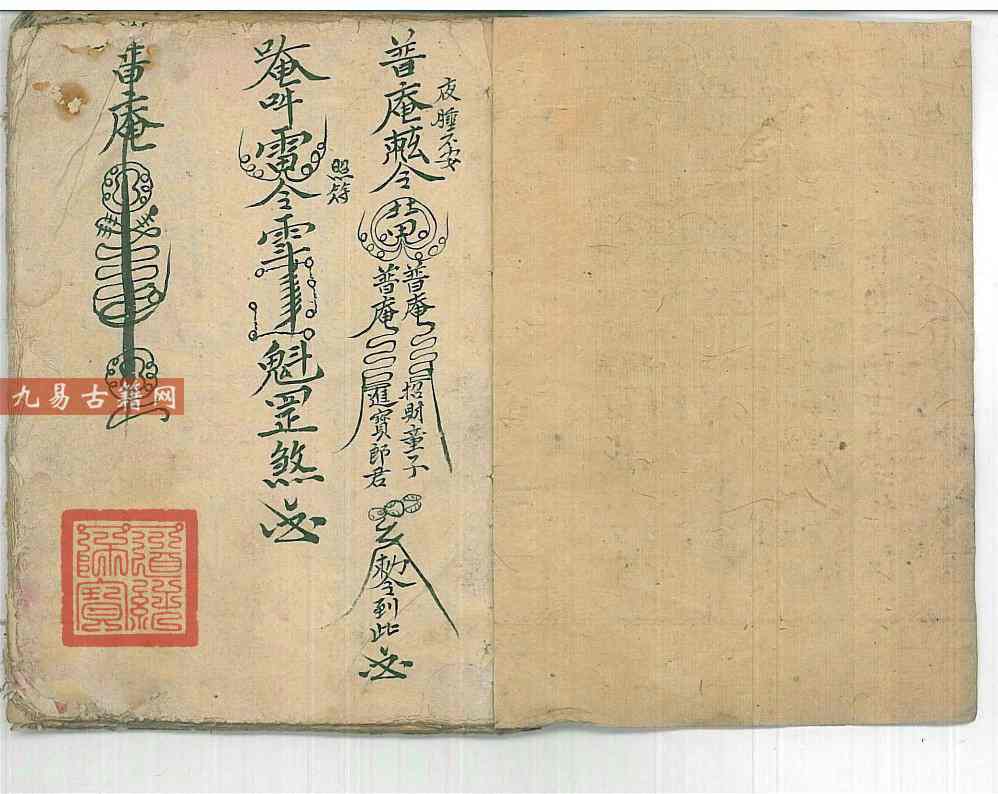 夜睡不安
普庵勅令
普庵
招財童子
普庵
進寶郎君
勅令到此
照符
唵吽雷令
魁罡煞
普庵
九易古籍网
道經師寶